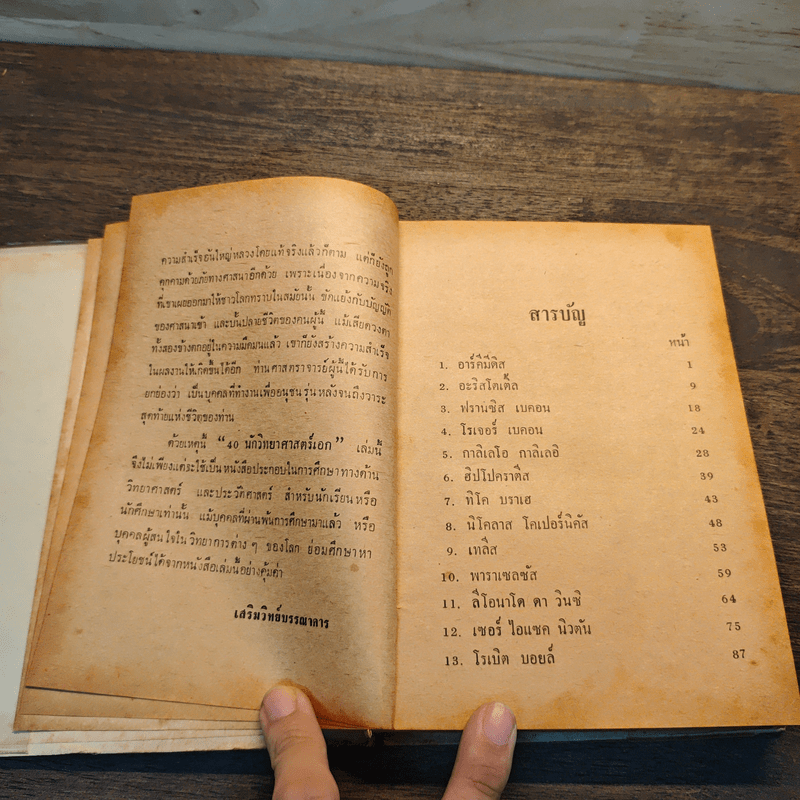 ความสำเร็จอันใหญ่หลวงโดยแท้จริงแล้วก็ตาม แต่ก็ยังถูก
คุกคามด้วยภัยทางศาสนาอีกด้วย เพราะเนื่องจากความจริง
ที่เขาเผยออกมาให้ชาวโลกทราบในสมัยนั้น ขัดแย้งกับบัญญัติ
ของศาสนาเข้า และบั้นปลายชีวิตของคนผู้นี้ แม้เสียดวงตา
ทั้งสองข้างตกอยู่ในความมืดมนแล้ว เขาก็ยังสร้างความสำเร็จ
ในผลงานให้เกิดขึ้นได้อีก ท่านศาสตราจารย์ผู้นี้ได้รับการ
ยกย่องว่า เป็นบุคคลที่ทำงานเพื่ออนุชนรุ่นหลังจนถึงวาระ
สุดท้ายแห่งชีวิตของท่าน
ด้วยเหตุนี้ “40 นักวิทยาศาสตร์เอก” เล่มนี้
จึงไม่เพียงแต่จะใช้เป็นหนังสือประกอบในการศึกษาทางด้าน
วิทยาศาสตร์ และประวัติศาสตร์ สำหรับนักเรียนหรือ
นักศึกษาเท่านั้น แม้บุคคลที่ผ่านพ้นการศึกษามาแล้ว หรือ
บุคคลผู้สนใจในวิทยาการต่างๆ ของโลก ย่อมศึกษาหา
ประโยชน์ได้จากหนังสือเล่มนี้อย่างคุ้มค่า
เสริมวิทย์บรรณาคาร
สารบัญ
หน้า
1. อาร์คีมีดิส 1
2. อะริสโตเติ้ล 9
3. ฟรานซิส เบคอน 18
4. โรเจอร์ เบคอน 24
5. กาลิเลโอ กาลิเลอิ 28
6. ฮิปโปคราตีส 39
7. ทิโค บราเฮ 43
8. นิโคลาส โคเปอร์นิคัส 48
9. เทลีส 53
10. พาราเซลซัส 59
11. ลีโอนาโด ดา วินซิ 64
12. เซอร์ ไอแซค นิวตัน 75
13. โรเบิต บอยล์ 87